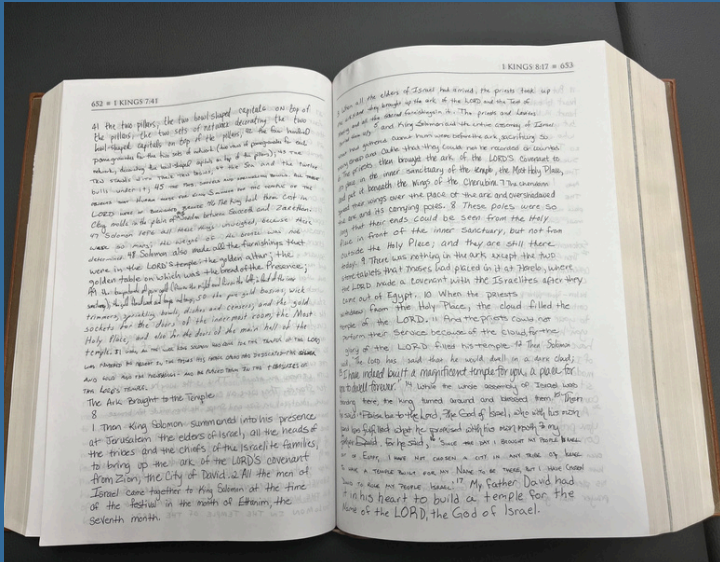 652 • 1 KINGS 7:41
41 the two pillars; the two bowl-shaped capitals on top of
the pillars; the two sets of network decorating the two
bowl-shaped capitals on top of the pillars; the four hundred
pomegranates for the two sets of network
the ten stands with their ten basins; the Sea and the twelve
bulls under it;
LORD were of burnished bronze. 46 The king had them cast in
clay molds in the plain of Jordan between Sukkoth and Zarethan.
47 Solomon left all these things unweighed, because there
were so many; the weight of the bronze was not
determined. 48 Solomon also made all the furnishings that
were in the LORD'S temple: the golden altar; the
golden table on which was the bread of the Presence;
49 the lampstands of pure gold
the pure gold basins, wick
trimmers, sprinkling bowls, dishes and censers; and the gold
sockets for the doors of the innermost room, the Most
Holy Place, and also for the doors of the main hall of the
temple. 51
the LORD'S temple.
The Ark Brought to the Temple
8
1 Then King Solomon summoned into his presence
at Jerusalem the elders of Israel, all the heads of
the tribes and the chiefs of the Israelite families,
to bring up the ark of the LORD'S covenant
from Zion, the City of David. 2 All the men of
Israel came together to King Solomon at the time
of the festival in the month of Ethanim, the
seventh month.
1 KINGS 8:17 • 653
when all the elders of Israel had arrived, the priests took up
the ark and they brought up the ark of the LORD and the Tent of
5 and King Solomon and the entire assembly of Israel
that had gathered about him were before the ark, sacrificing so
sheep and cattle that they could not be recorded or counted
The priests then brought the ark of the LORD'S covenant to
its place in the inner sanctuary of the temple, the Most Holy Place,
and put it beneath the wings of the Cherubim. 7 The cherubim
spread their wings over the place of the ark and overshadowed
the ark and its carrying poles. 8 These poles were so
long that their ends could be seen from the Holy
Place in front of the inner sanctuary, but not from
outside the Holy Place; and they are still there
today. 9 There was nothing in the ark except the two
stone tablets that Moses had placed in it at Horeb, where
the LORD made a covenant with the Israelites after they
came out of Egypt. 10 When the priests
withdrew from the Holy Place, the cloud filled the
temple of the LORD. 11 And the priests could not
perform their service because of the cloud, for the
glory of the LORD filled his temple. 12 Then Solomon
said, "The LORD has said that he would dwell in a dark cloud;
I have indeed built a magnificent temple for you, a place for
you to dwell forever." 14 While the whole assembly of Israel was
standing there, the king turned around and blessed them. 15 Then
he said: "Praise be to the Lord, the God of Israel, who with his own
hand has fulfilled what he promised with his own mouth to my
father David. For he said, 16 'Since the day I brought my people Israel
out of Egypt, I have not chosen a city in any tribe of Israel
to have a temple built for my Name to be there, but I have chosen
David to rule my people Israel.' 17 My father David had
it in his heart to build a temple for the
Name of the LORD, the God of Israel.